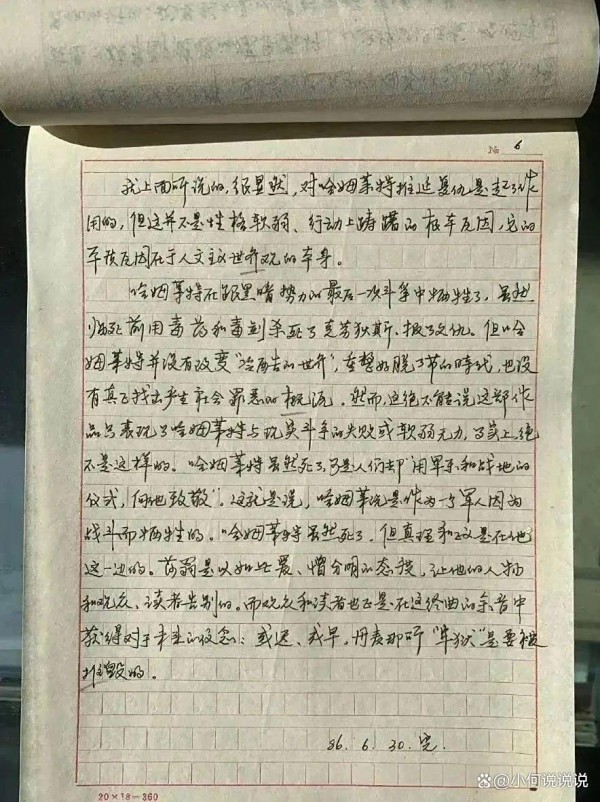 № 6
我上面所说的，很显然，对哈姆莱特推延复仇是起了作
用的，但这并不是性格软弱、行动上踌躇的根本原因，它的
本质原因在于人文主义世界观的本身。
哈姆莱特在跟黑暗势力的最后一次斗争中牺牲了，虽然
临死前用毒药和毒剑杀死了克劳狄斯，报了父仇。但哈
姆莱特并没有改变"冷酷的世界"，重整好脱了节的时代，也没
有真正找出产生社会罪恶的根源。然而，这绝不能说这部作
品只表现了哈姆莱特与现实斗争的失败或软弱无力，事实上，绝
不是这样的。哈姆莱特虽然死了，可是人们却"用军乐和战地的
仪式，向他致敬"。这就是说，哈姆莱特是作为一个军人因为
战斗而牺牲的。哈姆莱特虽然死了，但真理和正义是在他
这一边的。莎翁是以如此爱、憎分明的态度，让他的人物
和观众、读者告别的。而观众和读者也正是在这终曲的余音中
获得对于未来的信念：或迟、或早，丹麦那所"牢狱"是要被
摧毁的。
86. 6. 30. 完.
20×18=360
@小何说说说